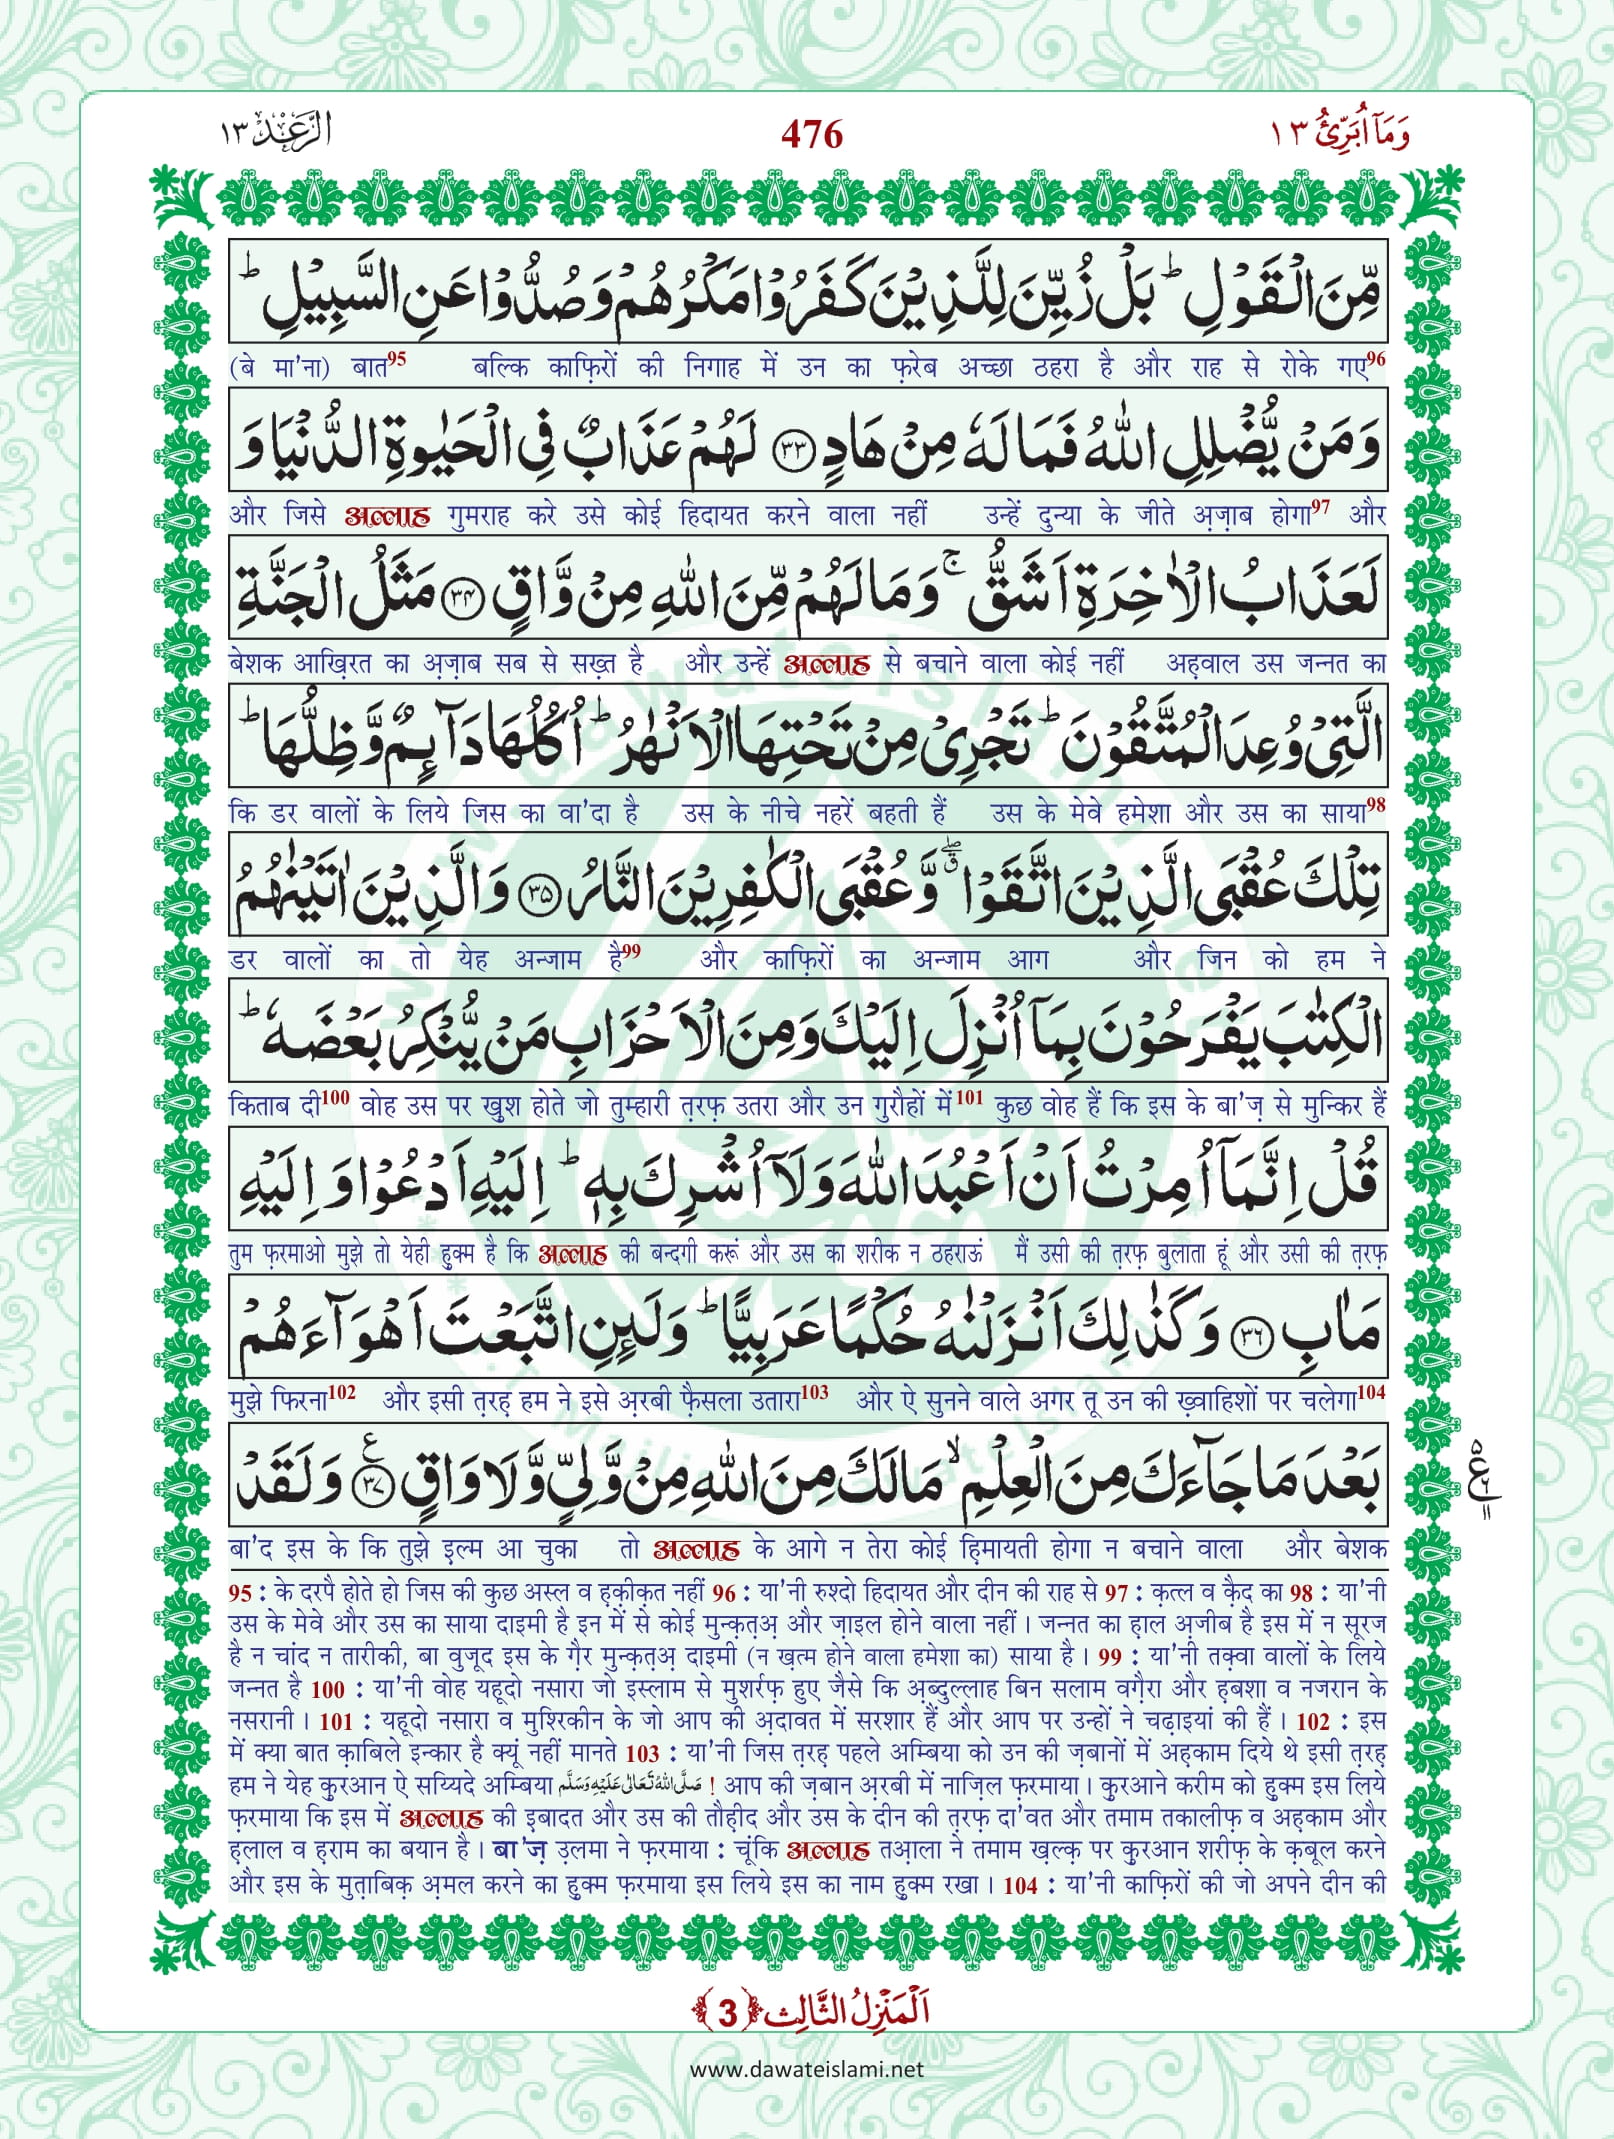 وَمَآ اُبَرِّئُ ١٣
476
الرَّعْد ١٣
مِّنَ الْقَوْلِ ؕ بَلْ زُیِّنَ لِلَّذِیْنَ كَفَرُوْا مَكْرُهُمْ وَ صُدُّوْا عَنِ السَّبِیْلِ ؕ
(बे मा'ना) बात95 बल्कि काफ़िरों की निगाह में उन का फ़रेब अच्छा ठहरा है और राह से रोके गए96
وَ مَنْ یُّضْلِلِ اللّٰهُ فَمَا لَهٗ مِنْ هَادٍ ﴿۳۳﴾ لَهُمْ عَذَابٌ فِی الْحَیٰوةِ الدُّنْیَا وَ
और जिसे अल्लाह गुमराह करे उसे कोई हिदायत करने वाला नहीं उन्हें दुन्या के जीते अ़ज़ाब होगा97 और
لَعَذَابُ الْاٰخِرَةِ اَشَقُّ ۚ وَ مَا لَهُمْ مِّنَ اللّٰهِ مِنْ وَّاقٍ ﴿۳۴﴾ مَثَلُ الْجَنَّةِ
बेशक आख़िरत का अ़ज़ाब सब से सख़्त है और उन्हें अल्लाह से बचाने वाला कोई नहीं अह़वाल उस जन्नत का
الَّتِیْ وُعِدَ الْمُتَّقُوْنَ ؕ تَجْرِیْ مِنْ تَحْتِهَا الْاَنْهٰرُ ؕ اُكُلُهَا دَآىِٕمٌ وَّ ظِلُّهَا ؕ
कि डर वालों के लिये जिस का वा'दा है उस के नीचे नहरें बहती हैं उस के मेवे हमेशा और उस का साया98
تِلْكَ عُقْبَی الَّذِیْنَ اتَّقَوْا ۖۗ وَّ عُقْبَی الْكٰفِرِیْنَ النَّارُ ﴿۳۵﴾ وَ الَّذِیْنَ اٰتَیْنٰهُمُ
डर वालों का तो येह अन्जाम है99 और काफ़िरों का अन्जाम आग और जिन को हम ने
الْكِتٰبَ یَفْرَحُوْنَ بِمَاۤ اُنْزِلَ اِلَیْكَ وَ مِنَ الْاَحْزَابِ مَنْ یُّنْكِرُ بَعْضَهٗ ؕ
किताब दी100 वोह उस पर खुश होते जो तुम्हारी त़रफ़ उतरा और उन गुरौहों में101 कुछ वोह हैं कि इस के बा'ज़ से मुन्किर हैं
قُلْ اِنَّمَاۤ اُمِرْتُ اَنْ اَعْبُدَ اللّٰهَ وَ لَاۤ اُشْرِكَ بِهٖ ؕ اِلَیْهِ اَدْعُوْا وَ اِلَیْهِ
तुम फ़रमाओ मुझे तो येही हुक्म है कि अल्लाह की बन्दगी करूं और उस का शरीक न ठहराऊं मैं उसी की त़रफ़ बुलाता हूं और उसी की त़रफ़
مَاٰبِ ﴿۳۶﴾ وَ كَذٰلِكَ اَنْزَلْنٰهُ حُكْمًا عَرَبِیًّا ؕ وَ لَىِٕنِ اتَّبَعْتَ اَهْوَآءَهُمْ
मुझे फिरना102 और इसी त़रह़ हम ने इसे अ़रबी फ़ैसला उतारा103 और ऐ सुनने वाले अगर तू उन की ख़्वाहिशों पर चलेगा104
بَعْدَ مَا جَآءَكَ مِنَ الْعِلْمِ ۙ مَا لَكَ مِنَ اللّٰهِ مِنْ وَّلِیٍّ وَّ لَا وَاقٍ ﴿۳۷﴾ وَ لَقَدْ
बा'द इस के कि तुझे इ़ल्म आ चुका तो अल्लाह के आगे न तेरा कोई ह़िमायती होगा न बचाने वाला और बेशक
95 : के दरपै होते हो जिस की कुछ अस्ल व ह़क़ीक़त नहीं 96 : या'नी रुश्दो हिदायत और दीन की राह से 97 : क़त्ल व क़ैद का 98 : या'नी
उस के मेवे और उस का साया दाइमी है इन में से कोई मुन्क़त़अ़ और ज़ाइल होने वाला नहीं । जन्नत का ह़ाल अ़जीब है इस में न सूरज
है न चांद न तारीकी, बा वुजूद इस के ग़ैर मुन्क़त़अ़ दाइमी (न ख़त्म होने वाला हमेशा का) साया है । 99 : या'नी तक़्वा वालों के लिये
जन्नत है 100 : या'नी वोह यहूदो नसारा जो इस्लाम से मुशर्रफ़ हुए जैसे कि अ़ब्दुल्लाह बिन सलाम वग़ैरा और ह़बशा व नजरान के
नसरानी । 101 : यहूदो नसारा व मुश्रिकीन के जो आप की अ़दावत में सरशार हैं और आप पर उन्हों ने चढ़ाइयां की हैं । 102 : इस
में क्या बात क़ाबिले इन्कार है क्यूं नहीं मानते 103 : या'नी जिस त़रह़ पहले अम्बिया को उन की ज़बानों में अह़काम दिये थे इसी त़रह़
हम ने येह क़ुरआन ऐ सय्यिदे अम्बिया صَلَّى اللّٰهُ تَعَالٰى عَلَيْهِ وَسَلَّم ! आप की ज़बान अ़रबी में नाज़िल फ़रमाया । क़ुरआने करीम को ह़ुक्म इस लिये
फ़रमाया कि इस में अल्लाह की इ़बादत और उस की तौह़ीद और उस के दीन की त़रफ़ दा'वत और तमाम तकालीफ़ व अह़काम और
ह़लाल व ह़राम का बयान है । बा'ज़ उ़लमा ने फ़रमाया : चूंकि अल्लाह तआ़ला ने तमाम ख़ल्क़ पर क़ुरआन शरीफ़ के क़बूल करने
और इस के मुत़ाबिक़ अ़मल करने का ह़ुक्म फ़रमाया इस लिये इस का नाम ह़ुक्म रखा । 104 : या'नी काफ़िरों की जो अपने दीन की
اَلْمَنْزِلُ الثَّالِث ﴿3﴾
www.dawateislami.net